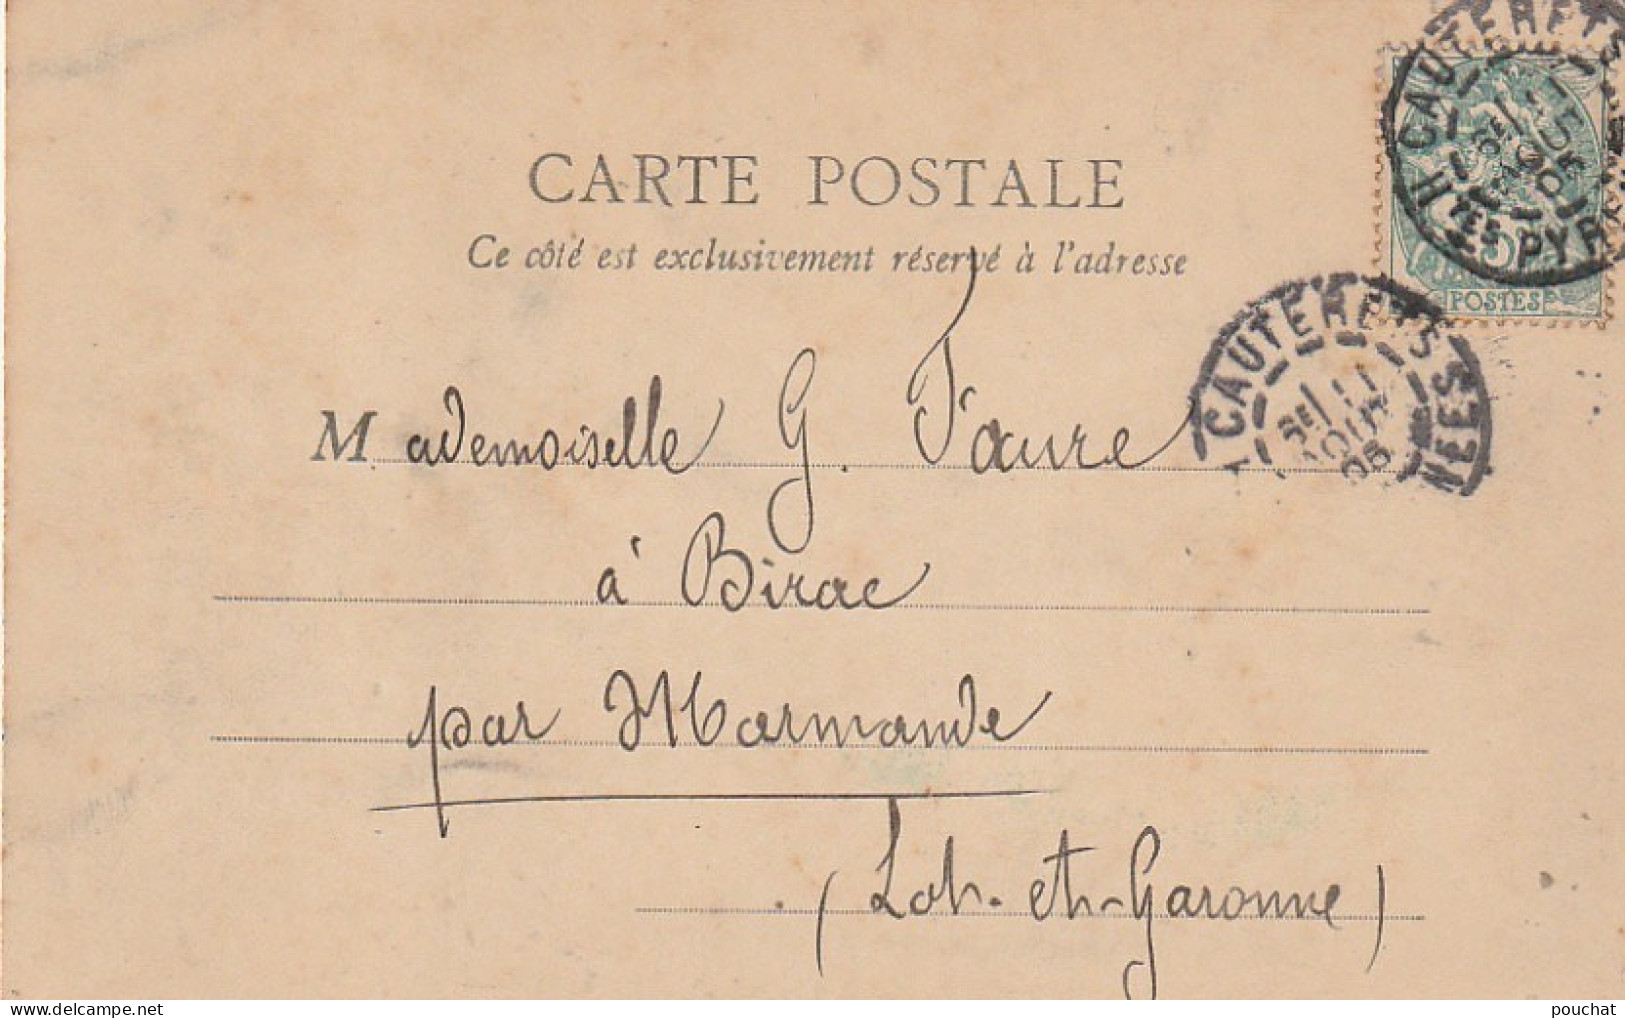 CARTE POSTALE
Ce côté est exclusivement réservé à l'adresse
CAUTERETS
Hтes PYR
5
POSTES
CAUTERETS
NEES
8E 11
AOUT
05
Mademoiselle G. Faure
à Birac
par Marmande
(Lot-et-Garonne)
delcampe.net
pouchat